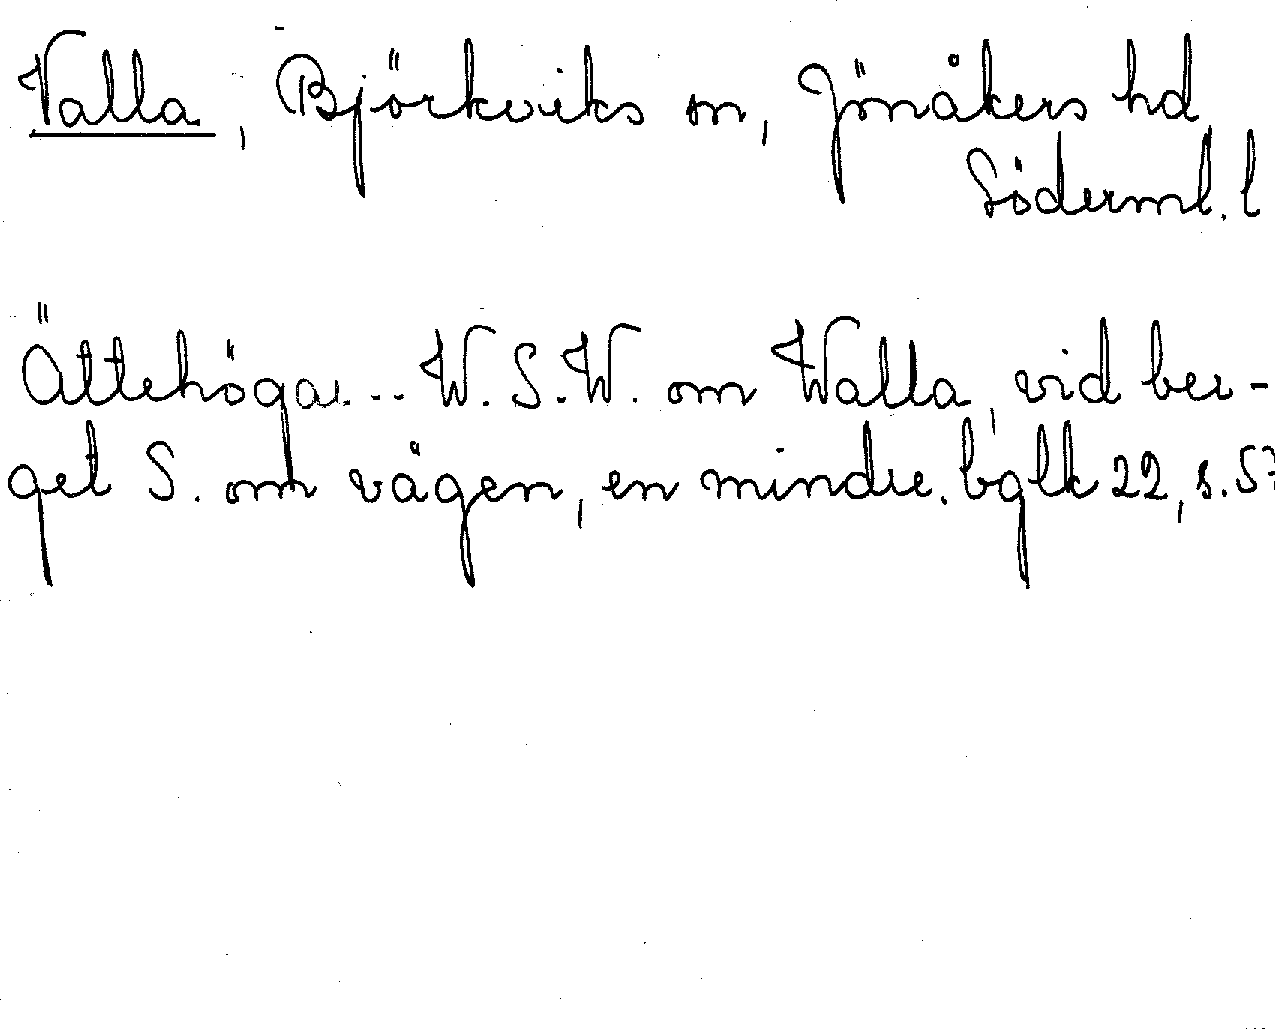 Valla, Björkviks sn, Jönåkers hd
Söderml. l
Ättehögar... W.S.W. om Walla, vid ber-
get S. om vägen, en mindre. bglk 22, s.